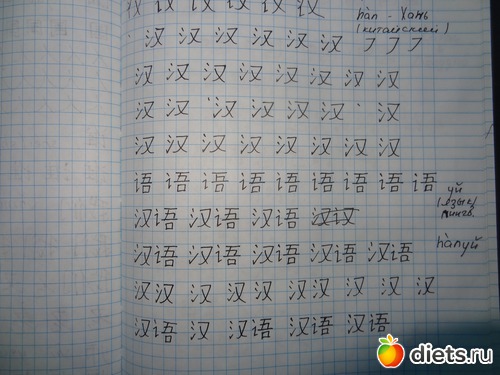 汉 汉 汉 汉 汉 汉
hàn - Хань
(китайский)
汉 汉 汉 汉 汉 汉
汉 汉 汉 汉 汉 汉 汉 汉
汉 汉 汉 汉 汉 汉 汉
汉 汉 汉 汉 汉 汉 汉 汉
语 语 语 语 语 语 语 语 语
уй
(язык)
汉语 汉语 汉语 汉汉
汉语 汉语 汉语 汉语 汉语
hànуй
汉汉 汉 汉汉 汉汉 汉 汉 汉
汉语 汉 汉语 汉语 汉语
diets.ru